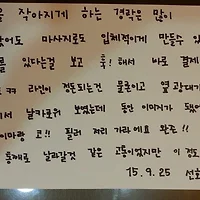 을 작아지게 하는 경락은 많이
았어도 마사지로도 입체적이게 만들수 있
를 있다는걸 보고 훅! 해서 바로 결제
ㅋㅋ 라인이 정돈되는건 물론이고 옆 광대가
서 날카로워 보였는데 동안 이미지가 됐어
이마랑 코!! 필러 저리 가라에요 완죤!!
통째로 날라갈것 같은 고통이었지만 이 정도
15. 9. 25 선호